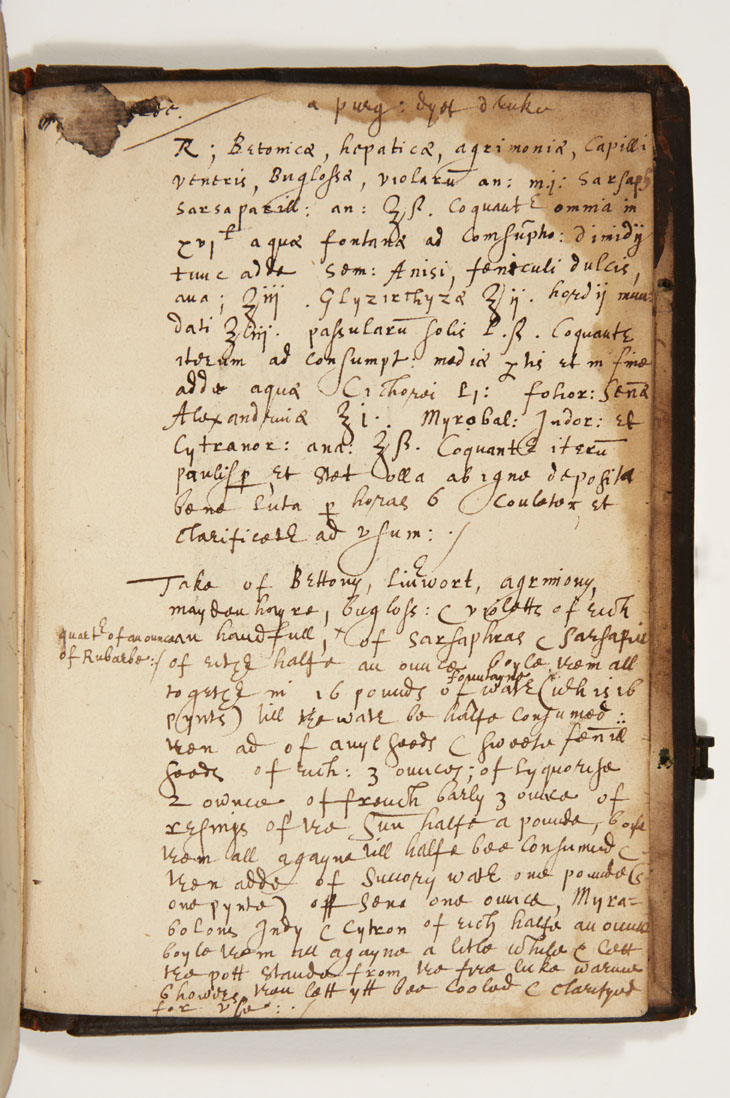 a purg: dyet drinke
R; Betonicæ, hepaticæ, agrimoniæ, Capilli
veneris, Buglossæ, violarū an: mj: Sarsaph
Sarsaparill: an: ʒß. Coquantr omnia in
xvjl aquæ fontanæ ad Comsūpho: dimidij
tunc adde Sem: Anisi, feniculi dulcis,
ana; ʒiij. Glyzirrhyzæ ʒij. hordij mun:
dati ʒiiij. passularū solis l.ß. Coquantr
iterum ad Consumpt: mediæ ptis et in fine
adde aquæ Cichorei lj: folior: Senæ
Alexandrinæ ʒj. Myrobal: Indor: et
Cytranor: ana: ʒß. Coquantr iterū
paulisp, et stet olla ab igne deposita
bene luta p horas 6 Couletr, et
Clarificetr ad vsum:
Take of Bettony, liuerwort, agrimony,
mayden hayre, bugloss: & violetts of eich
an handfull, + of Sarsaphras & Sarsapill
quartr of an ounce
of Rubarbe:/
of eithr halfe an ounce boyle them all
togethr in 16 pounds of fountayne watr (wch is 16
pynts) till the watr be halfe Consumed::
then ad of anyl seeds & sweete fenill
seeds of eich: 3 ounces; of lyquorise
2 ounce of french barly 3 ounce of
resings of the Sun halfe a pounde, boyle
them all agayne till halfe bee Consumed &
then adde of Succory watr one pounde (is
one pynte) off Sena one ounce, Myra=
bolons Indy & Cytron of eich halfe an ounce
boyle them all agayne a litle while & lett
the pott stande from the fire luke warme
6 howers then lett ytt bee Cooled & Clarifyed
for vse: